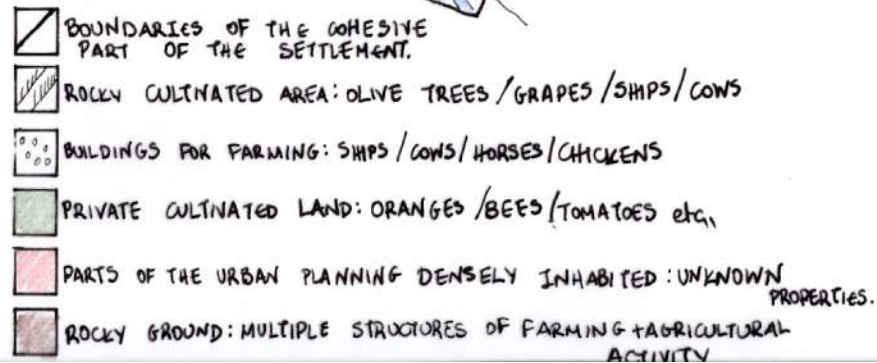 BOUNDARIES OF THE COHESIVE
PART OF THE SETTLEMENT.
ROCKY CULTIVATED AREA: OLIVE TREES / GRAPES / SHIPS / COWS
BUILDINGS FOR FARMING: SHIPS / COWS / HORSES / CHICKENS
PRIVATE CULTIVATED LAND: ORANGES / BEES / TOMATOES etc,
PARTS OF THE URBAN PLANNING DENSELY INHABITED : UNKNOWN
PROPERTIES.
ROCKY GROUND: MULTIPLE STRUCTURES OF FARMING + AGRICULTURAL
ACTIVITY